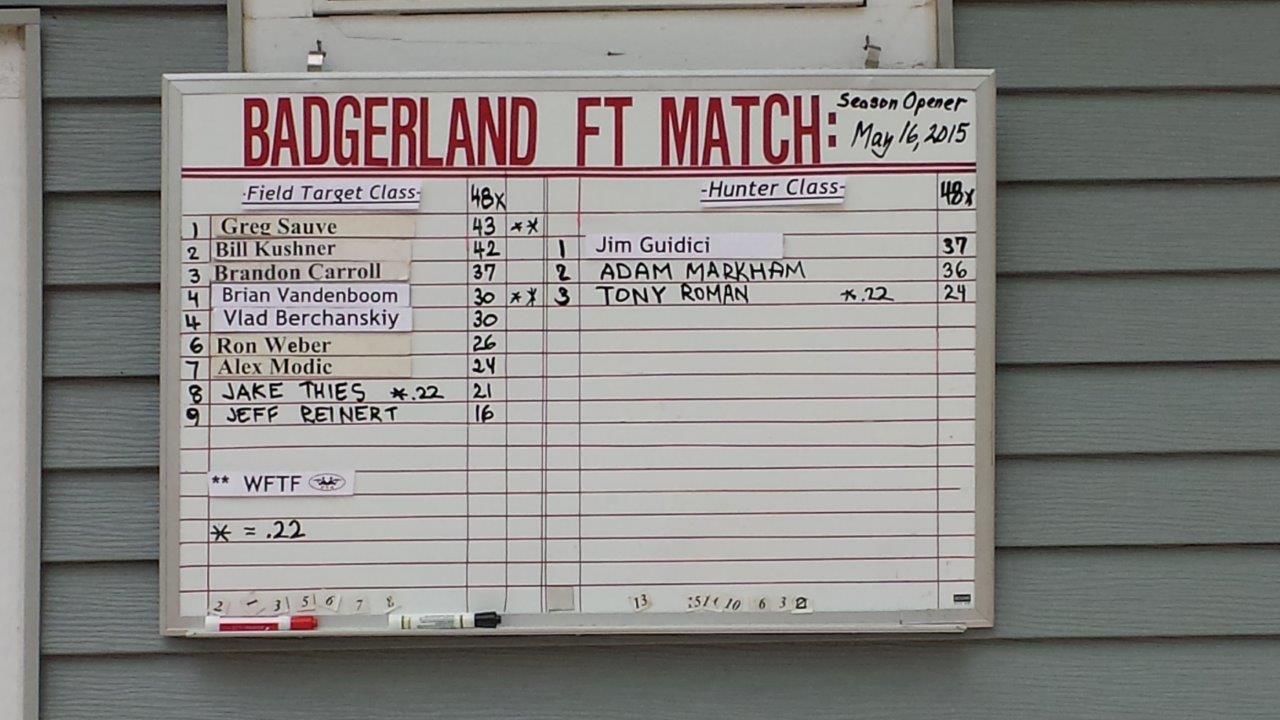 BADGERLAND FT MATCH: Season Opener
May 16, 2015
-Field Target Class- 48x
1 Greg Sauve 43 **
2 Bill Kushner 42
3 Brandon Carroll 37
4 Brian Vandenboom 30 **
4 Vlad Berchanskiy 30
6 Ron Weber 26
7 Alex Modic 24
8 JAKE THIES *.22 21
9 JEFF REINERT 16
** WFTF
* = .22
-Hunter Class- 48x
1 Jim Guidici 37
2 ADAM MARKHAM 36
3 TONY ROMAN *.22 24
2 3 5 6 7 8 13 10 6 3